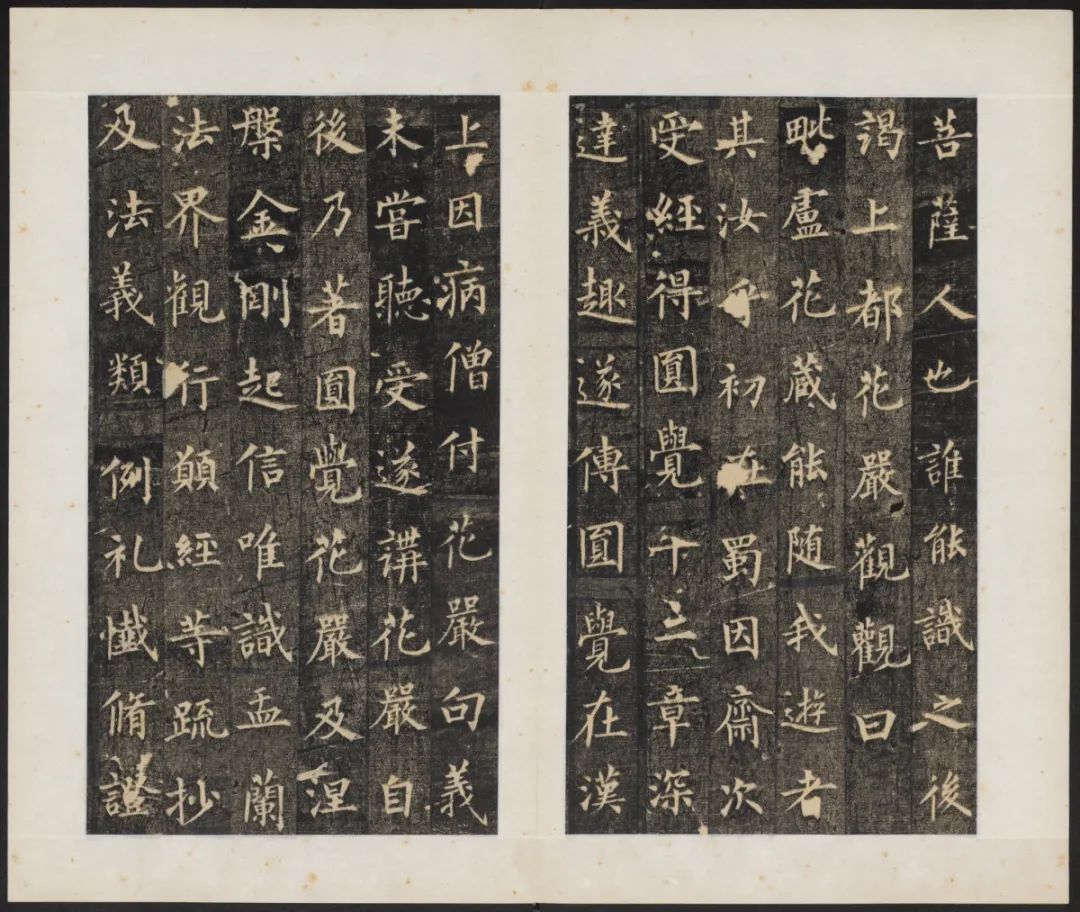 菩薩人也誰能識之後
謁上都花嚴觀觀曰
毗盧花蔵能随我遊者
其汝乎初在蜀因齋次
受經得圓覺十三章深
達義趣遂傳圓覺在漢
上因病僧付花嚴句義
未甞聽受遂講花嚴自
後乃著圓覺花嚴及涅
槃金剛起信唯識盂蘭
法界觀行願經等疏抄
及法義類例礼懺脩證